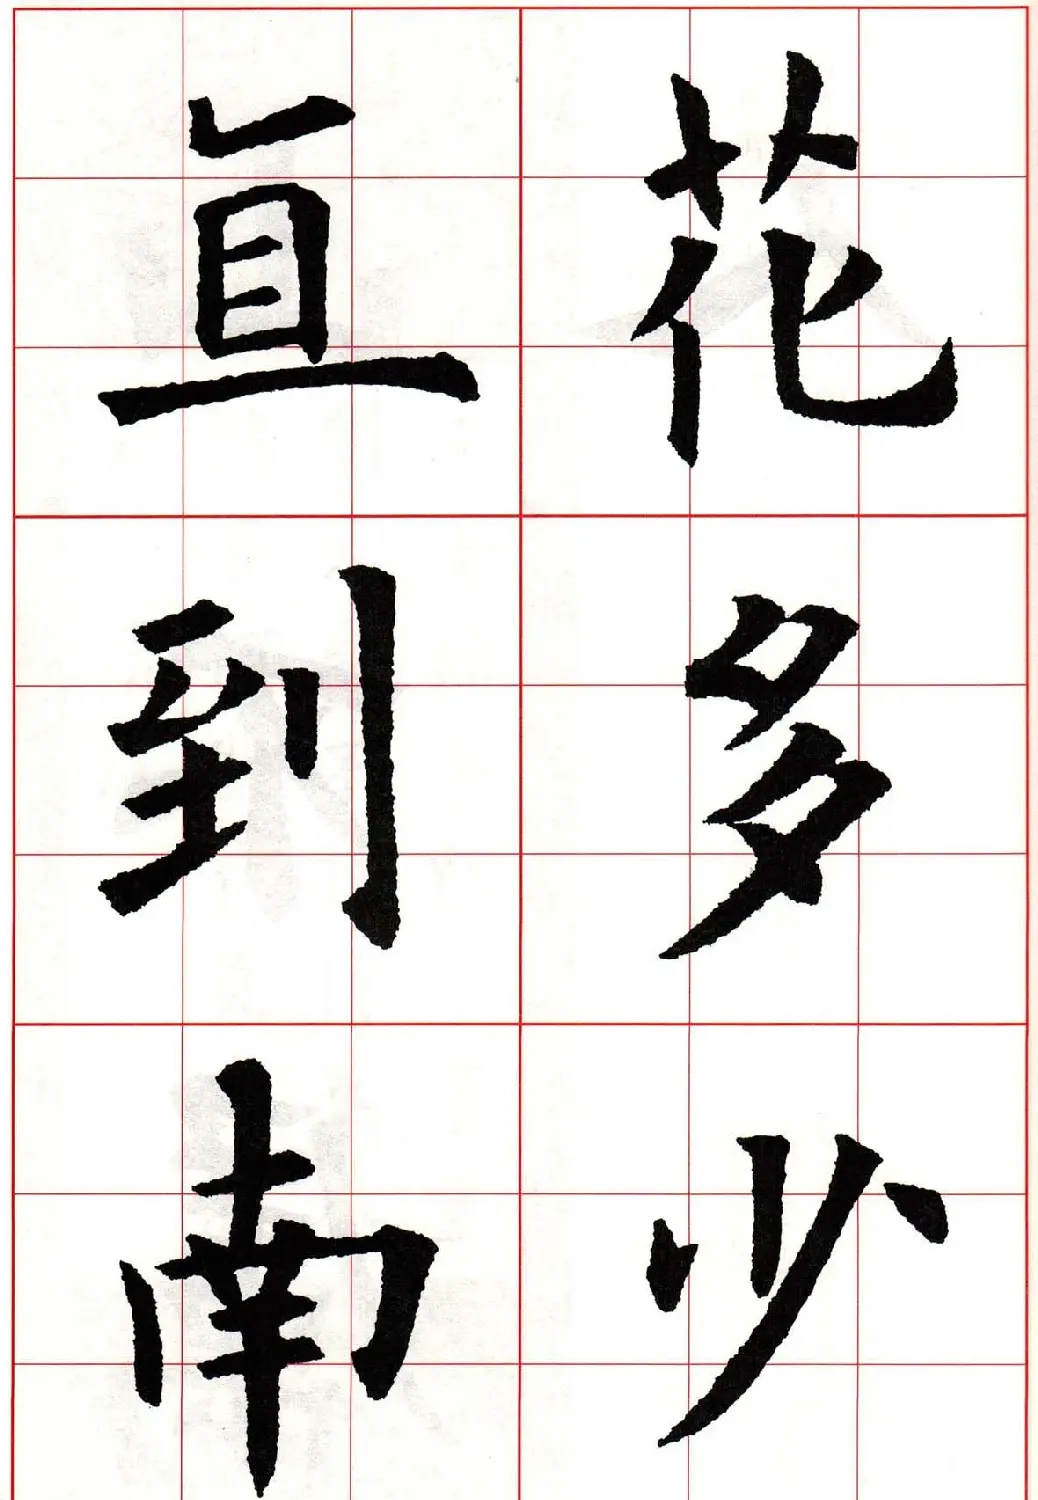 花多少
直到南